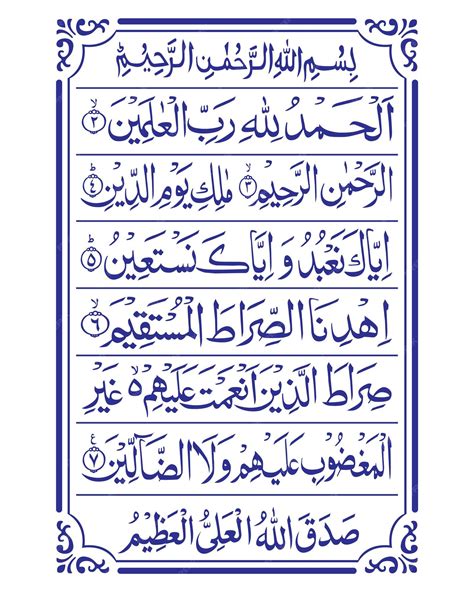 بِسْمِ اللهِ الرَّحْمٰنِ الرَّحِيْمِ
اَلْحَمْدُ لِلهِ رَبِّ الْعٰلَمِيْنَ ۙ۝۲
الرَّحْمٰنِ الرَّحِيْمِ ۙ۝۳ مٰلِكِ يَوْمِ الدِّيْنِ ؕ۝۴
اِيَّاكَ نَعْبُدُ وَ اِيَّاكَ نَسْتَعِيْنُ ؕ۝۵
اِهْدِنَا الصِّرَاطَ الْمُسْتَقِيْمَ ۙ۝۶
صِرَاطَ الَّذِيْنَ اَنْعَمْتَ عَلَيْهِمْ ۵ غَيْرِ
الْمَغْضُوْبِ عَلَيْهِمْ وَلَا الضَّآلِّيْنَ ۝۷ع
صَدَقَ اللهُ الْعَلِىُّ الْعَظِيْمُ